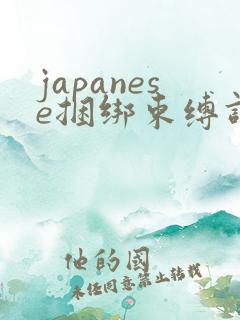 japanes
e捆绑束缚
他的國
未任同意禁止转载